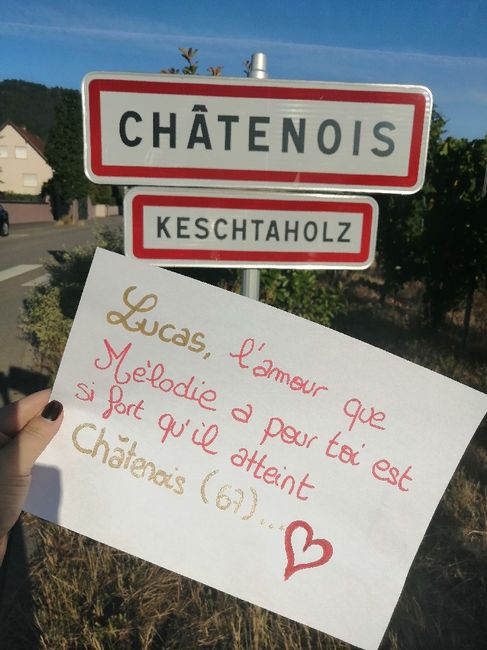 CHÂTENOIS
KESCHTAHOLZ
Lucas, l'amour que
Mélodie a pour toi est
si fort qu'il atteint
Châtenois (67)...